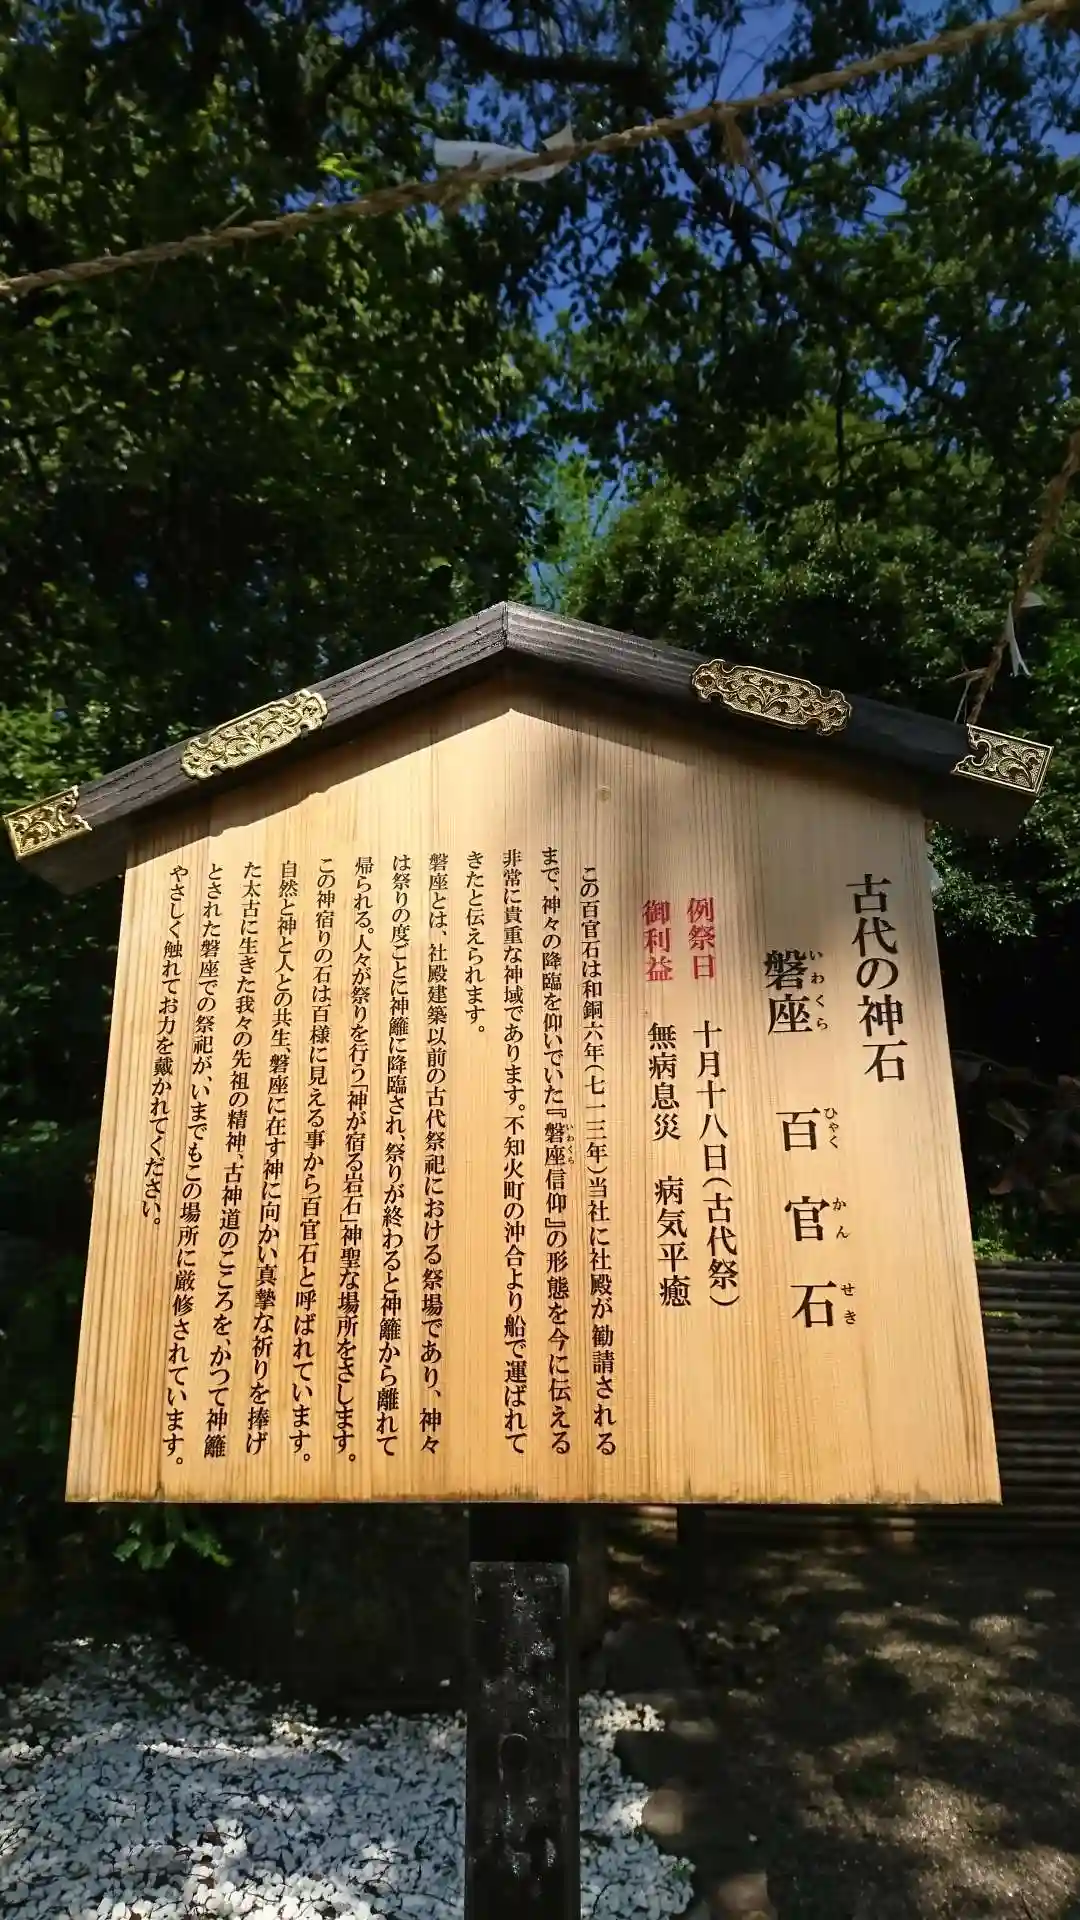 古代の神石
磐座 百官石
いわくら ひゃく かん せき
例祭日 十月十八日(古代祭)
御利益 無病息災 病気平癒
この百官石は和銅六年(七一三年)当社に社殿が勧請される
まで、神々の降臨を仰いでいた『磐座信仰』の形態を今に伝える
いわくら
非常に貴重な神域であります。不知火町の沖合より船で運ばれて
きたと伝えられます。
磐座とは、社殿建築以前の古代祭祀における祭場であり、神々
は祭りの度ごとに神籬に降臨され、祭りが終わると神籬から離れて
帰られる。人々が祭りを行う「神が宿る岩石」神聖な場所をさします。
この神宿りの石は百様に見える事から百官石と呼ばれています。
自然と神と人との共生、磐座に在す神に向かい真摯な祈りを捧げ
た太古に生きた我々の先祖の精神、古神道のこころを、かつて神籬
とされた磐座での祭祀が、いまでもこの場所に厳修されています。
やさしく触れてお力を戴かれてください。